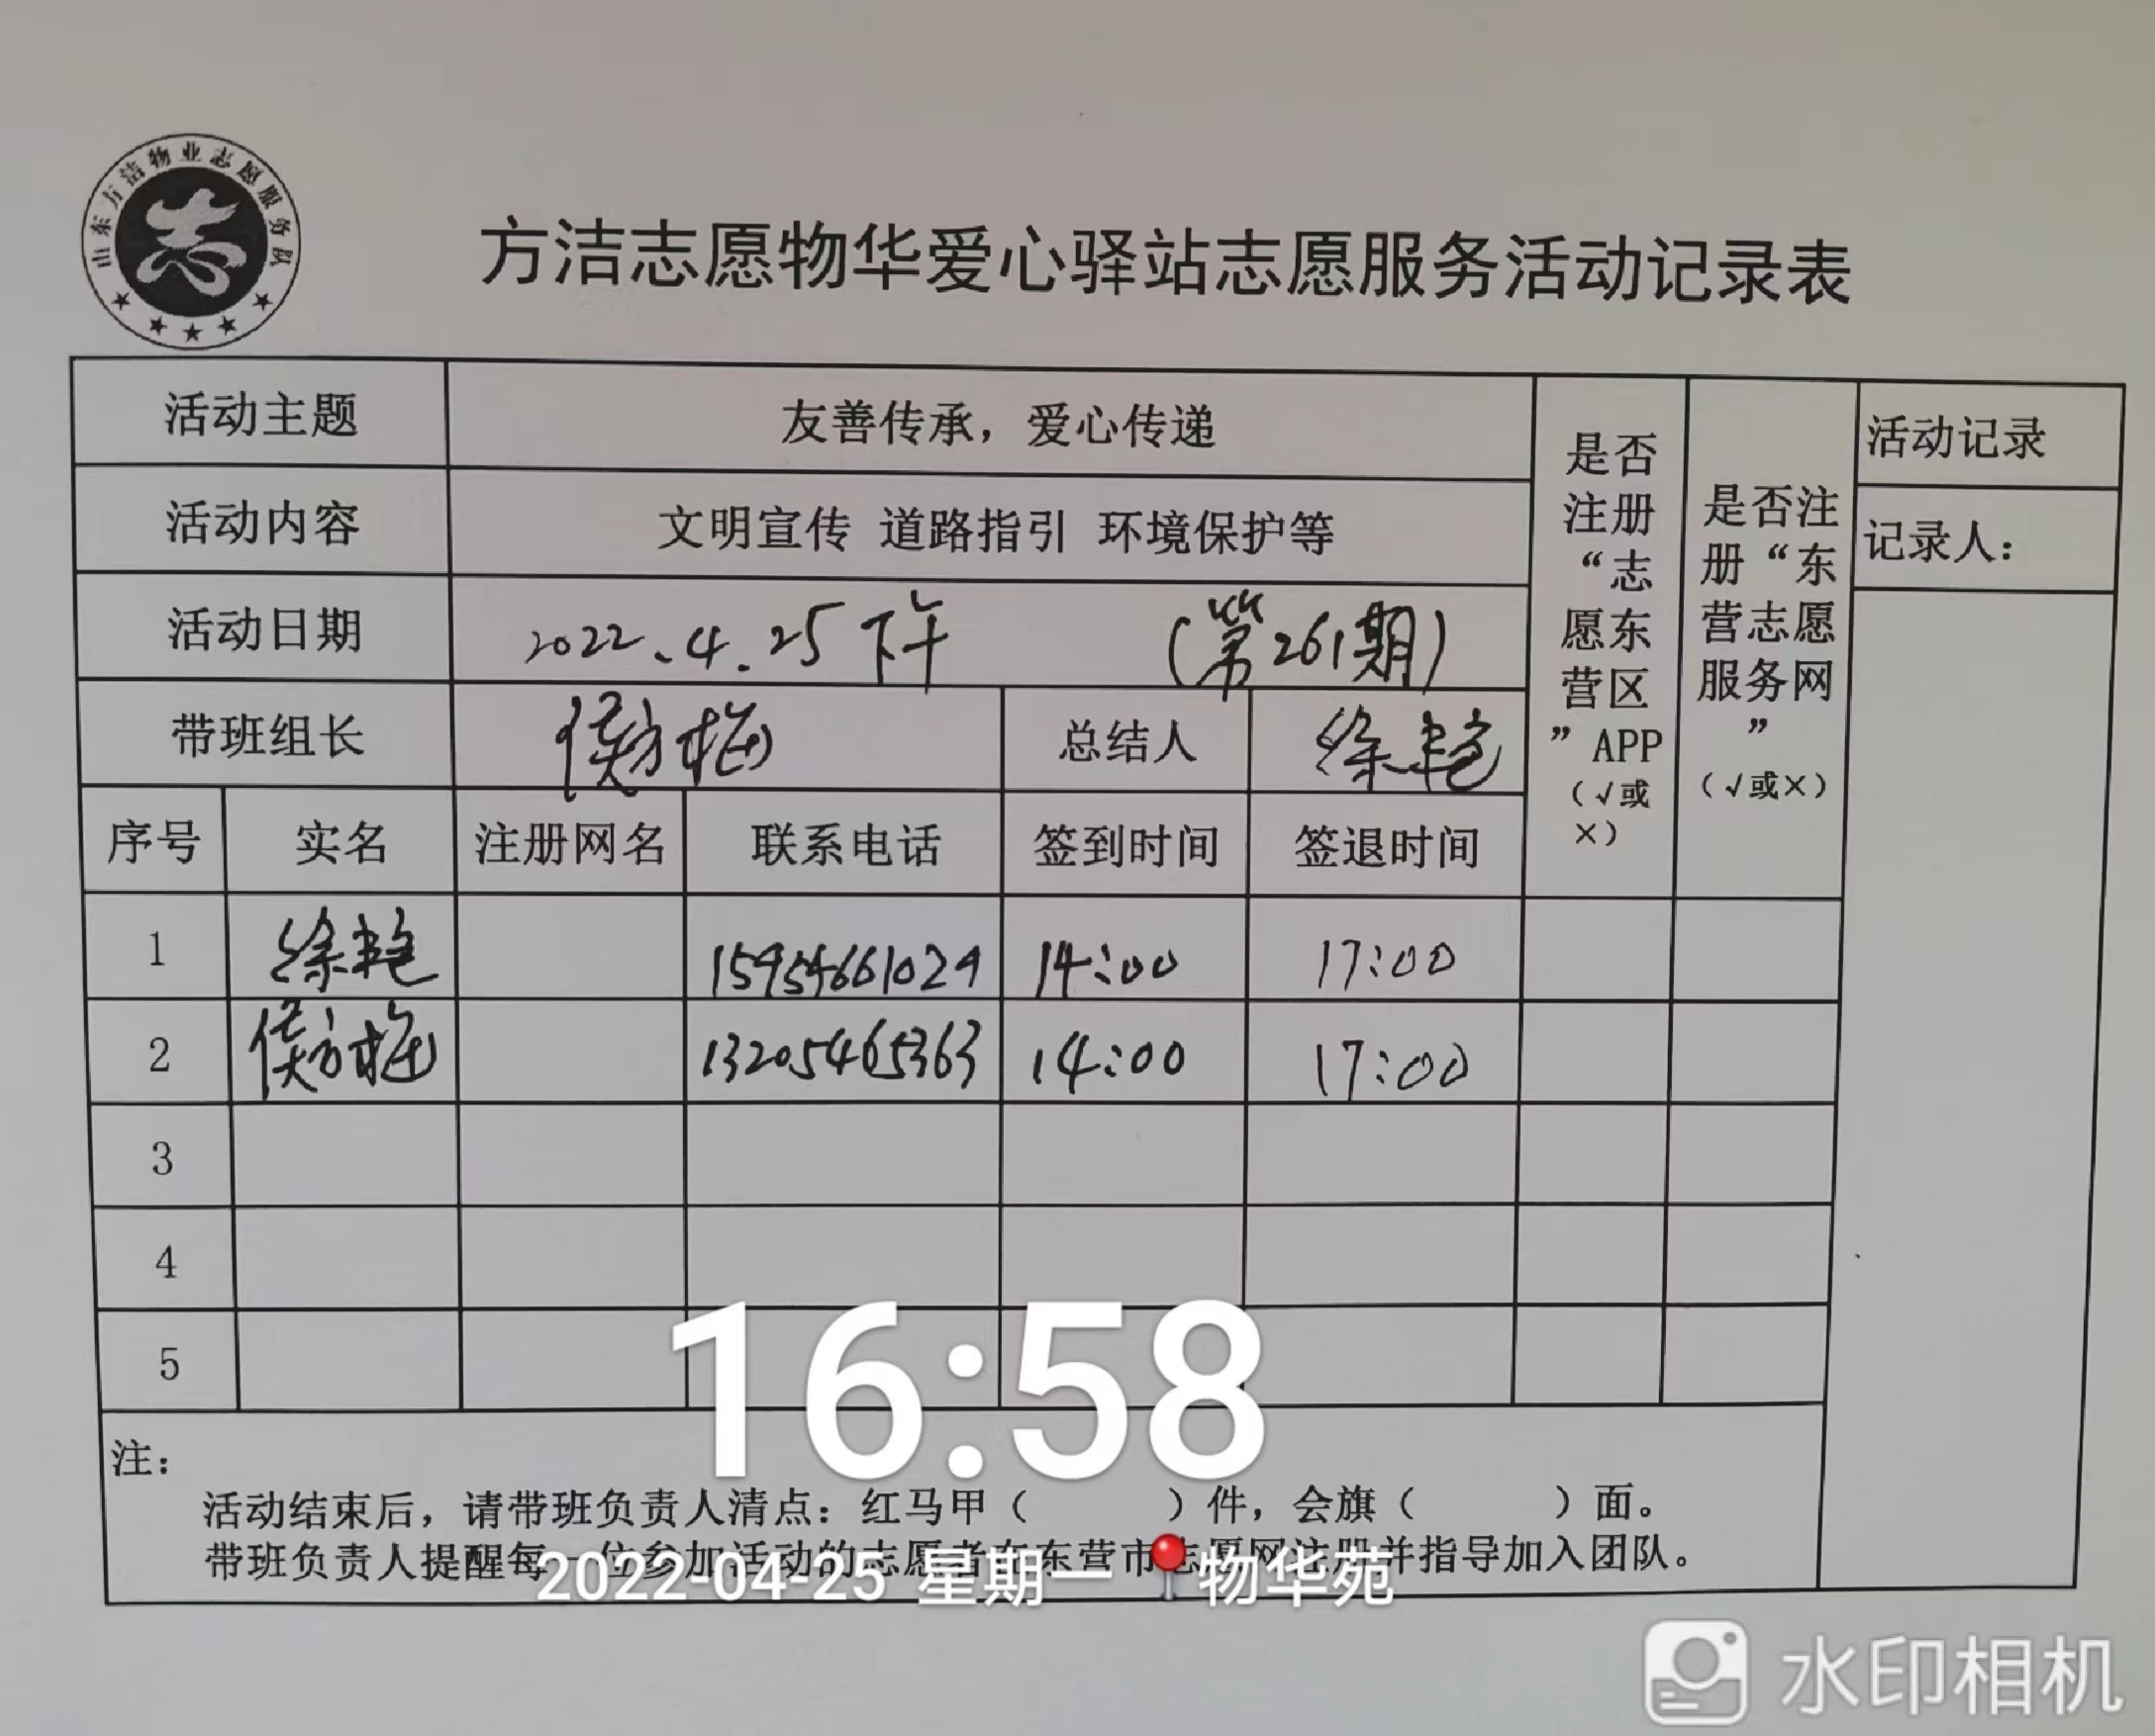 山东方洁物业志愿服务队
志
方洁志愿物华爱心驿站志愿服务活动记录表
活动主题 友善传承，爱心传递
活动内容 文明宣传 道路指引 环境保护等
活动日期 2022.4.25下午 (第261期)
带班组长 侯方梅 总结人 徐艳
是否
注册
“志
愿东
营区
”APP
（√或
×）
是否注
册“东
营志愿
服务网
”
（√或×）
活动记录
记录人：
序号 实名 注册网名 联系电话 签到时间 签退时间
1 徐艳 15954661029 14:00 17:00
2 侯方梅 13205465363 14:00 17:00
3
4
5
16:58
注：
活动结束后，请带班负责人清点：红马甲（ ）件，会旗（ ）面。
带班负责人提醒每一位参加活动的志愿者在东营市志愿网注册并指导加入团队。
2022-04-25 星期一 物华苑
水印相机